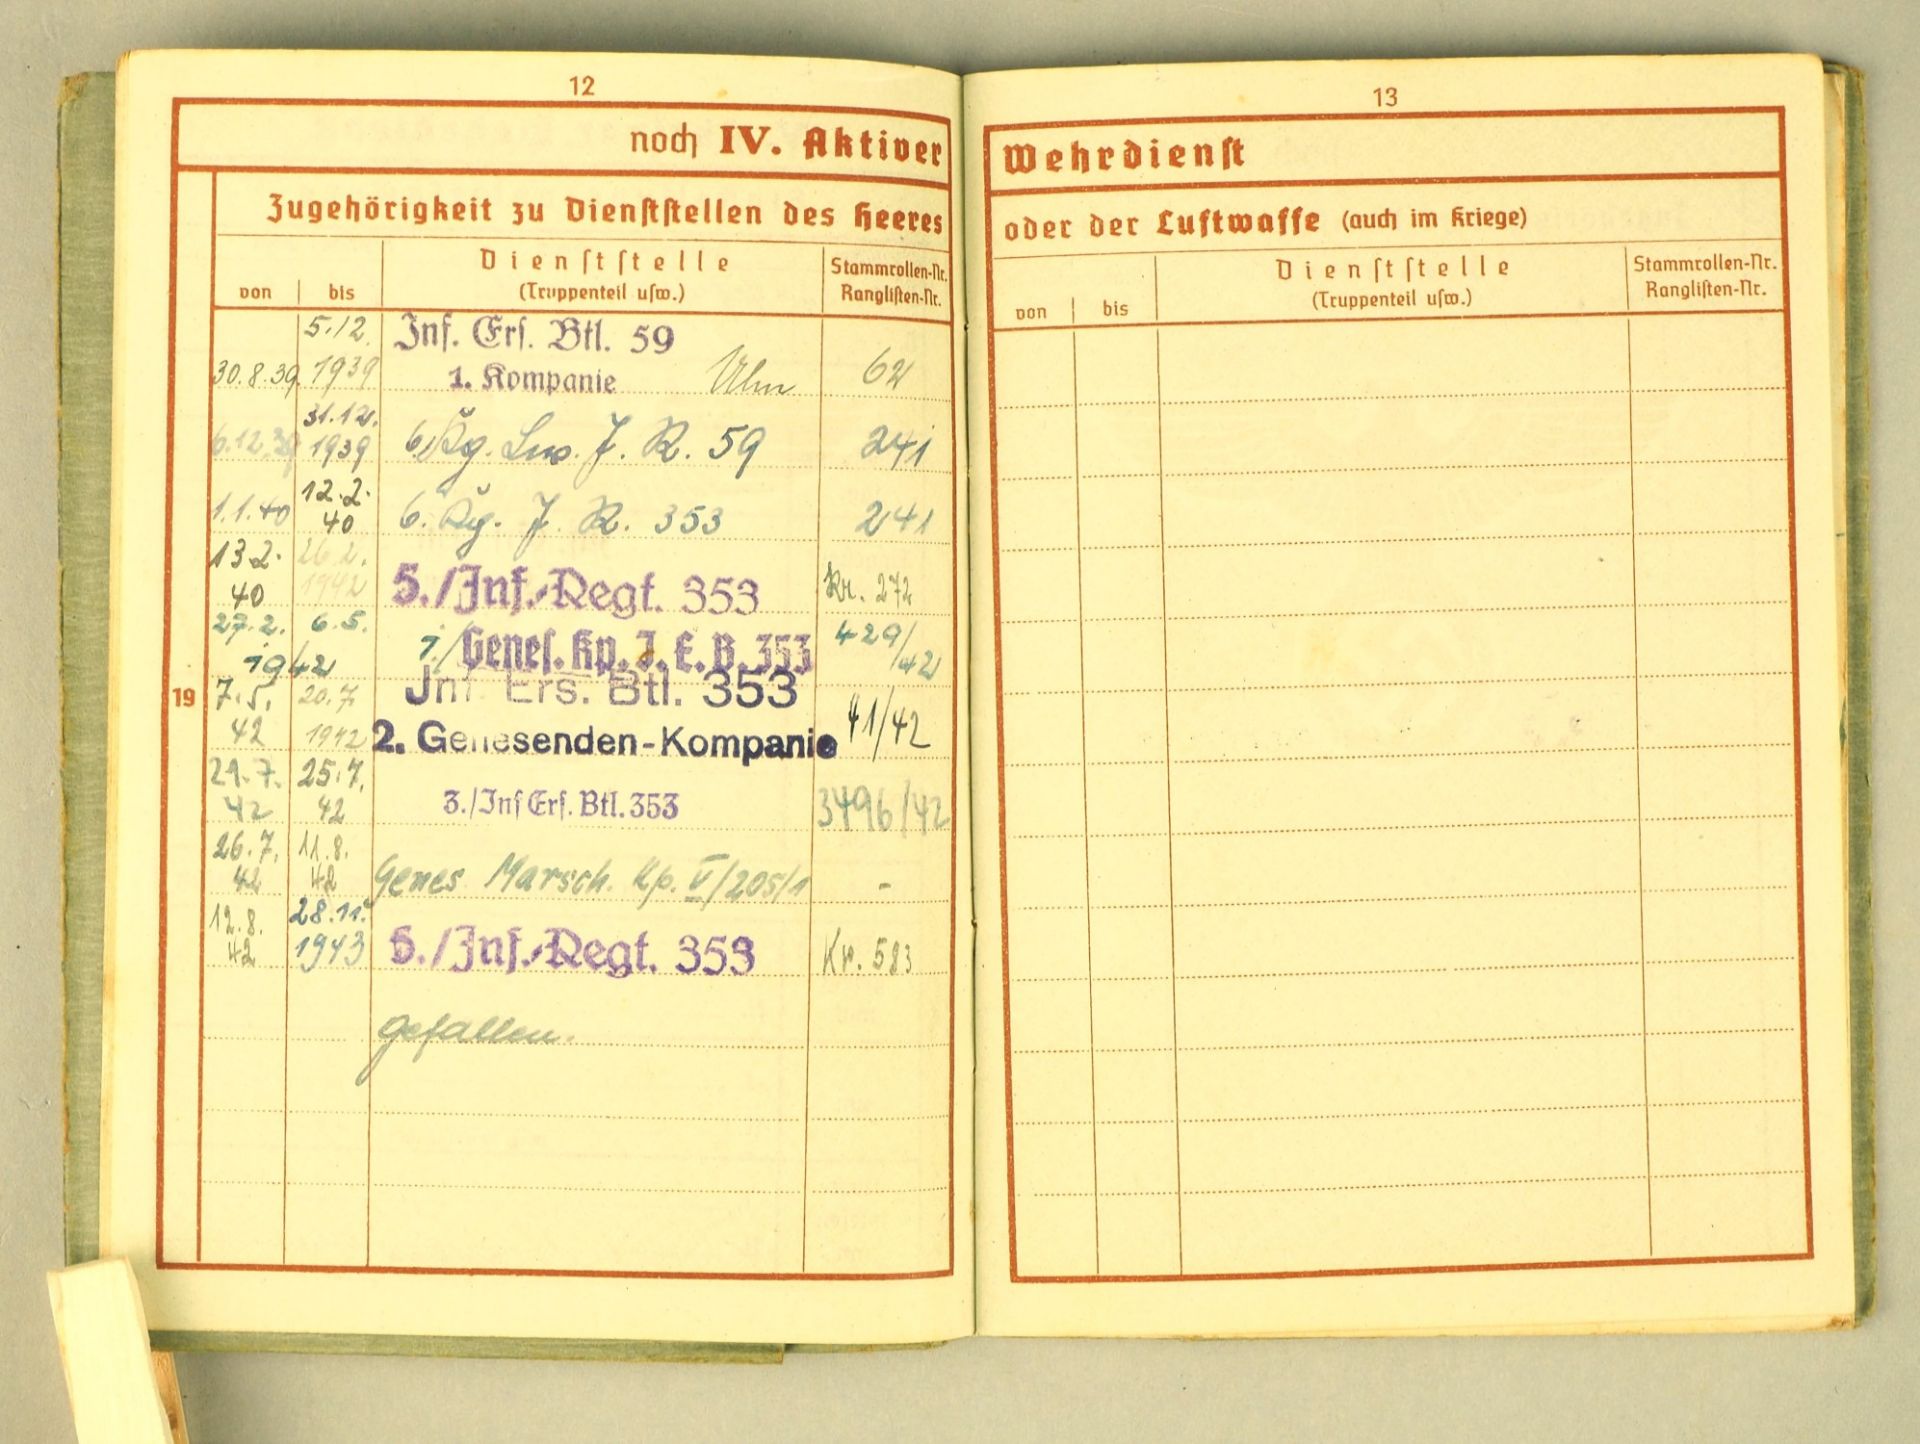 12
noch IV. Aktiver
Zugehörigkeit zu Dienststellen des Heeres
von bis
Dienststelle
(Truppenteil usw.)
Stammrollen-Nr.
Ranglisten-Nr.
30.8.39. 5.12. 1939
Inf. Ers. Btl. 59
1. Kompanie Ulm
62
6.12.39 31.12. 1939 241
1.1.40 12.2. 40 6. J. R. 353 241
13.2. 40 26.2. 1942 5./Inf.-Regt. 353 Kr. 272
27.2. 6.5. 1942 1./Genes. Kp. J. E. B. 353 429/42
19
7.5. 42 20.7. 1942
Inf. Ers. Btl. 353
2. Genesenden-Kompanie
41/42
21.7. 42 25.7. 42 3./Inf Ers. Btl. 353 3496/42
26.7. 42 11.8. 42 Genes. Marsch. Kp. V/205/1 -
12.8. 42 28.11. 1943 5./Inf.-Regt. 353 Kr. 583
gefallen.
13
Wehrdienst
oder der Luftwaffe (auch im Kriege)
von bis
Dienststelle
(Truppenteil usw.)
Stammrollen-Nr.
Ranglisten-Nr.